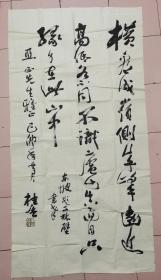 横看成岭侧成峰远近
高低各不同不识庐山真面目只
缘身在此山中
东坡题西林壁
亚西先生雅正己卯年